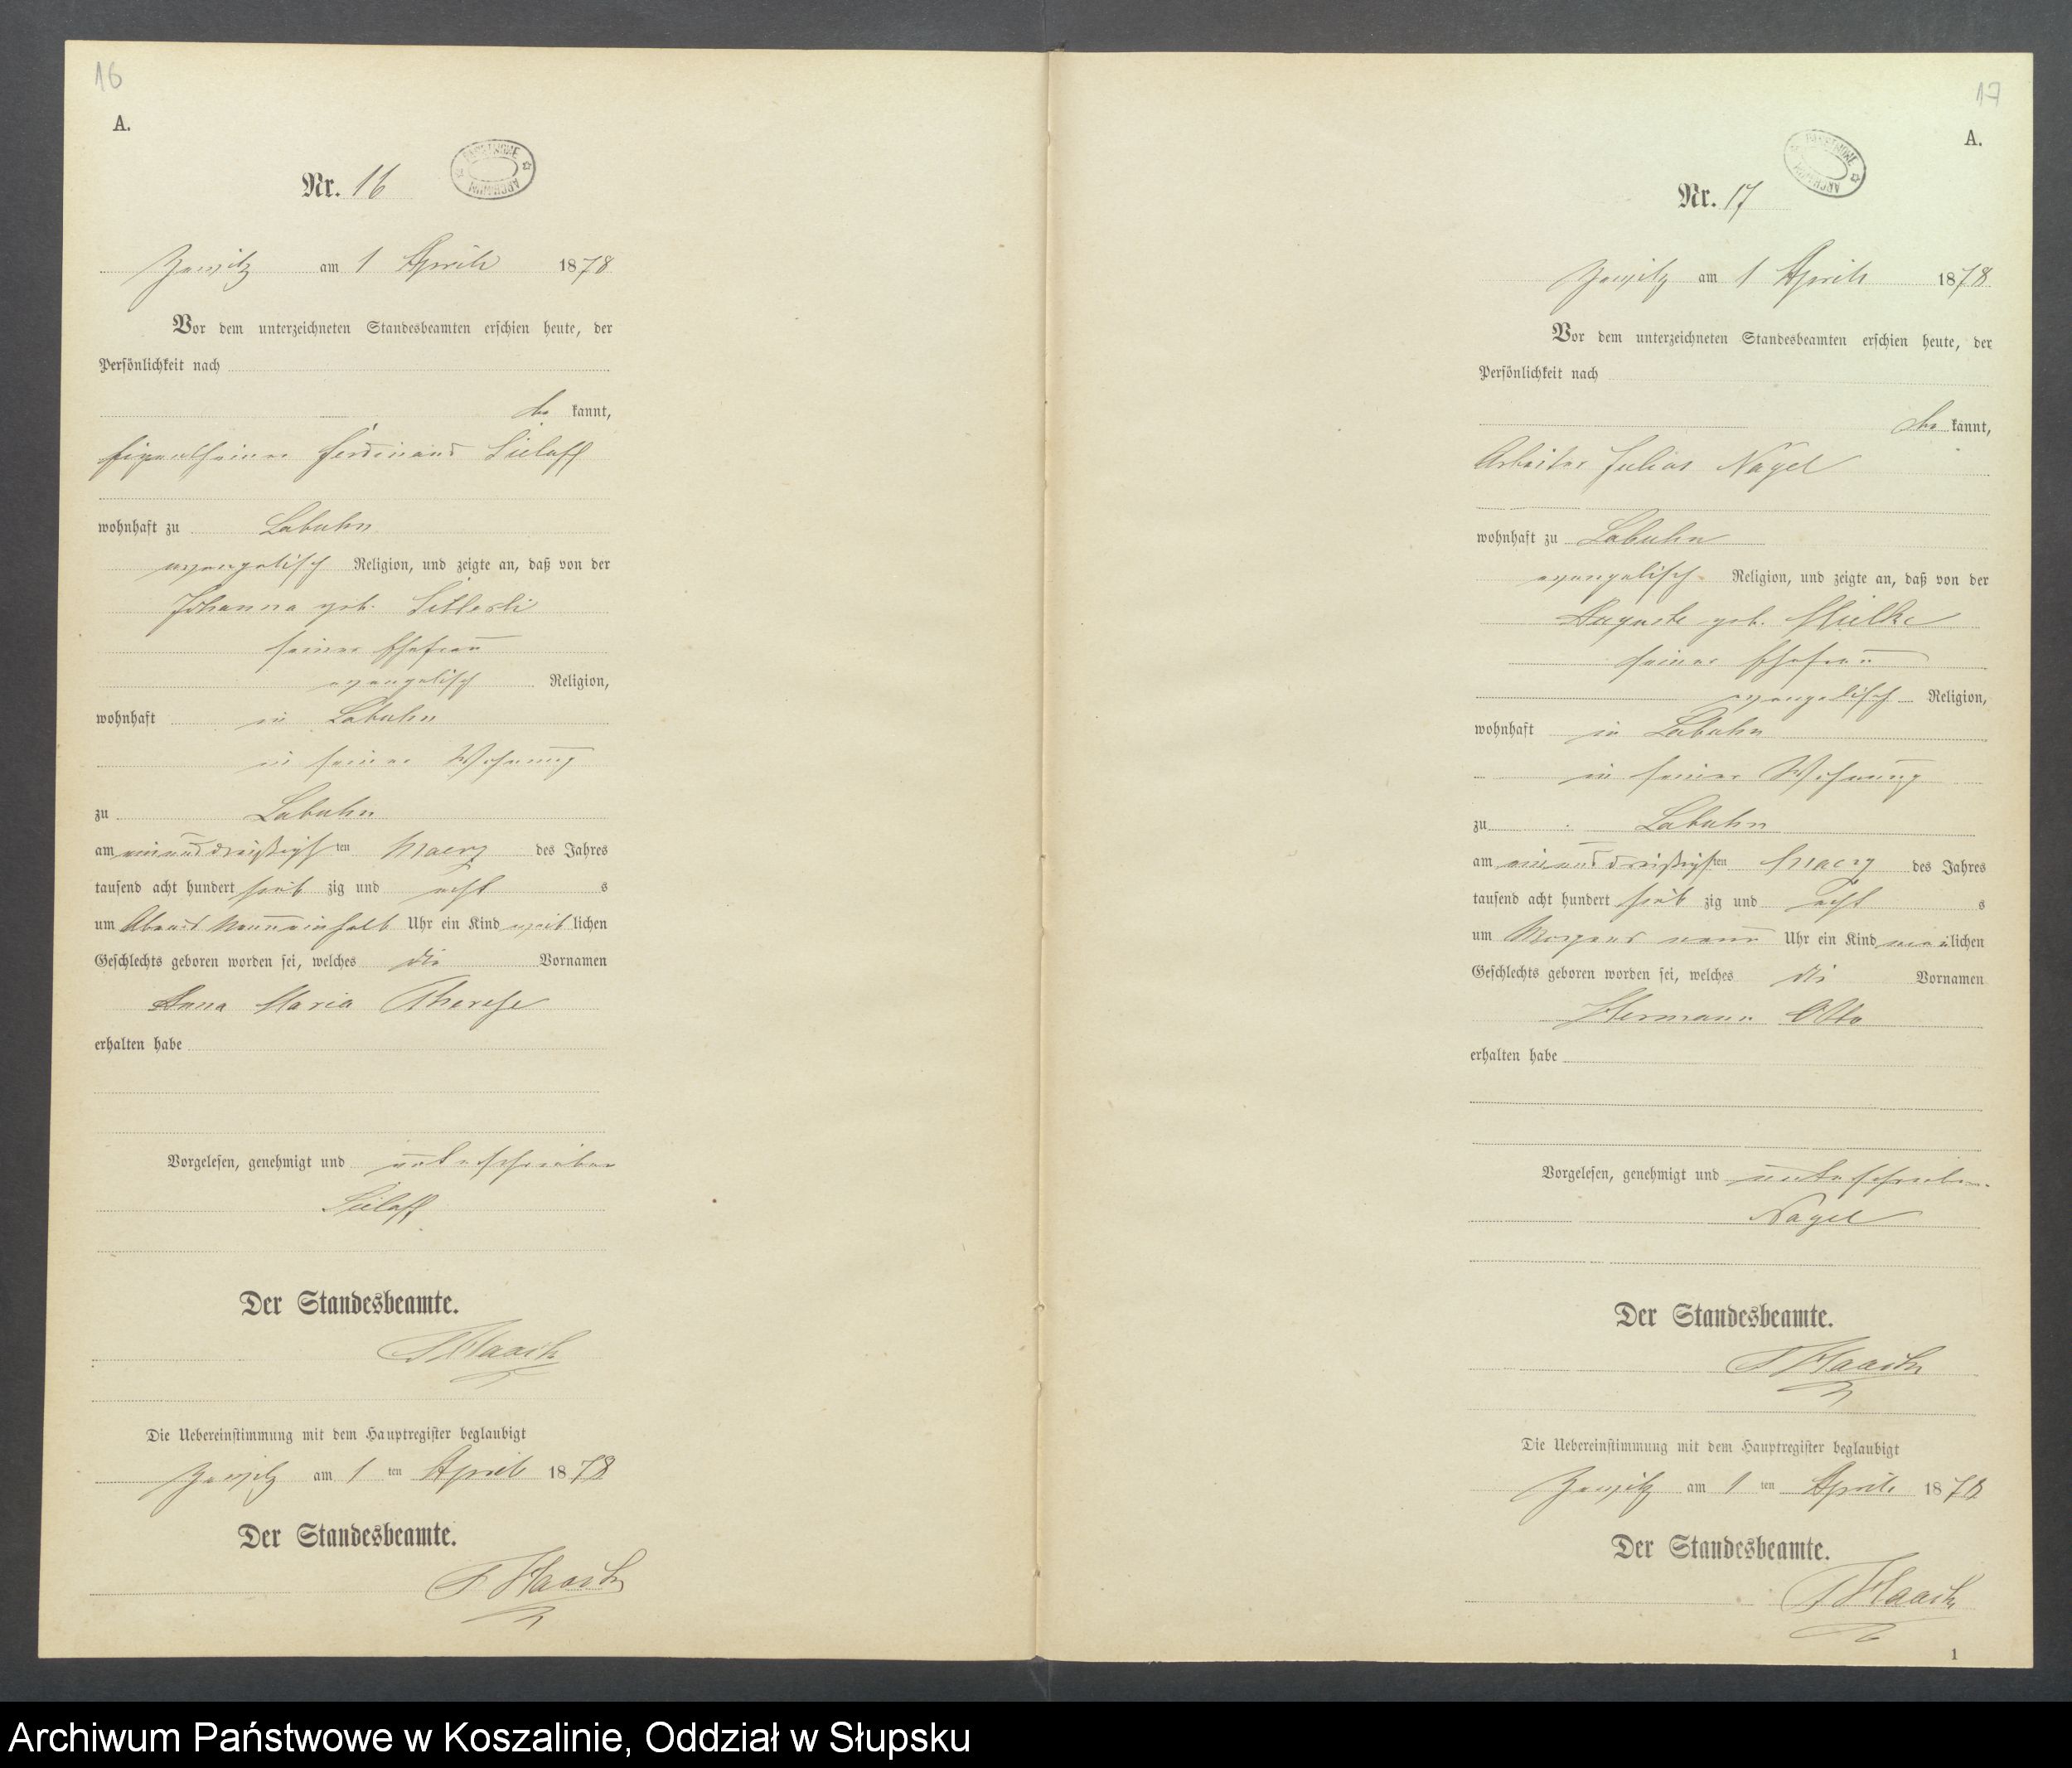 16
A.
Nr. 16
Jewitz am 1 April 1878
Vor dem unterzeichneten Standesbeamten erschien heute, der
Persönlichkeit nach
be kannt,
Eigenthümer Ferdinand Sielaff
wohnhaft zu Labuhn
evangelisch Religion, und zeigte an, daß von der
Johanna geb.
seiner Ehefrau
evangelisch Religion,
wohnhaft in Labuhn
in seiner Wohnung
zu Labuhn
am einunddreißigsten Maerz des Jahres
tausend acht hundert sieb zig und acht s
um Abends Neuneinhalb Uhr ein Kind weiblichen
Geschlechts geboren worden sei, welches die Vornamen
Anna Maria Therese
erhalten habe
Vorgelesen, genehmigt und unterschrieben
Sielaff
Der Standesbeamte.
Die Uebereinstimmung mit dem Hauptregister beglaubigt
Jewitz am 1 ten April 1878
Der Standesbeamte.
17
A.
Nr. 17
Jewitz am 1 April 1878
Vor dem unterzeichneten Standesbeamten erschien heute, der
Persönlichkeit nach
be kannt,
Arbeiter Julius Nagel
wohnhaft zu Labuhn
evangelisch Religion, und zeigte an, daß von der
Auguste geb. Mielke
seiner Ehefrau
evangelisch Religion,
wohnhaft in Labuhn
in seiner Wohnung
zu Labuhn
am einunddreißigsten Maerz des Jahres
tausend acht hundert sieb zig und acht s
um Morgens neun Uhr ein Kind mänlichen
Geschlechts geboren worden sei, welches die Vornamen
Hermann Otto
erhalten habe
Vorgelesen, genehmigt und unterschrieben.
Nagel
Der Standesbeamte.
Die Uebereinstimmung mit dem Hauptregister beglaubigt
Jewitz am 1 ten April 1878
Der Standesbeamte.
1
Archiwum Państwowe w Koszalinie, Oddział w Słupsku